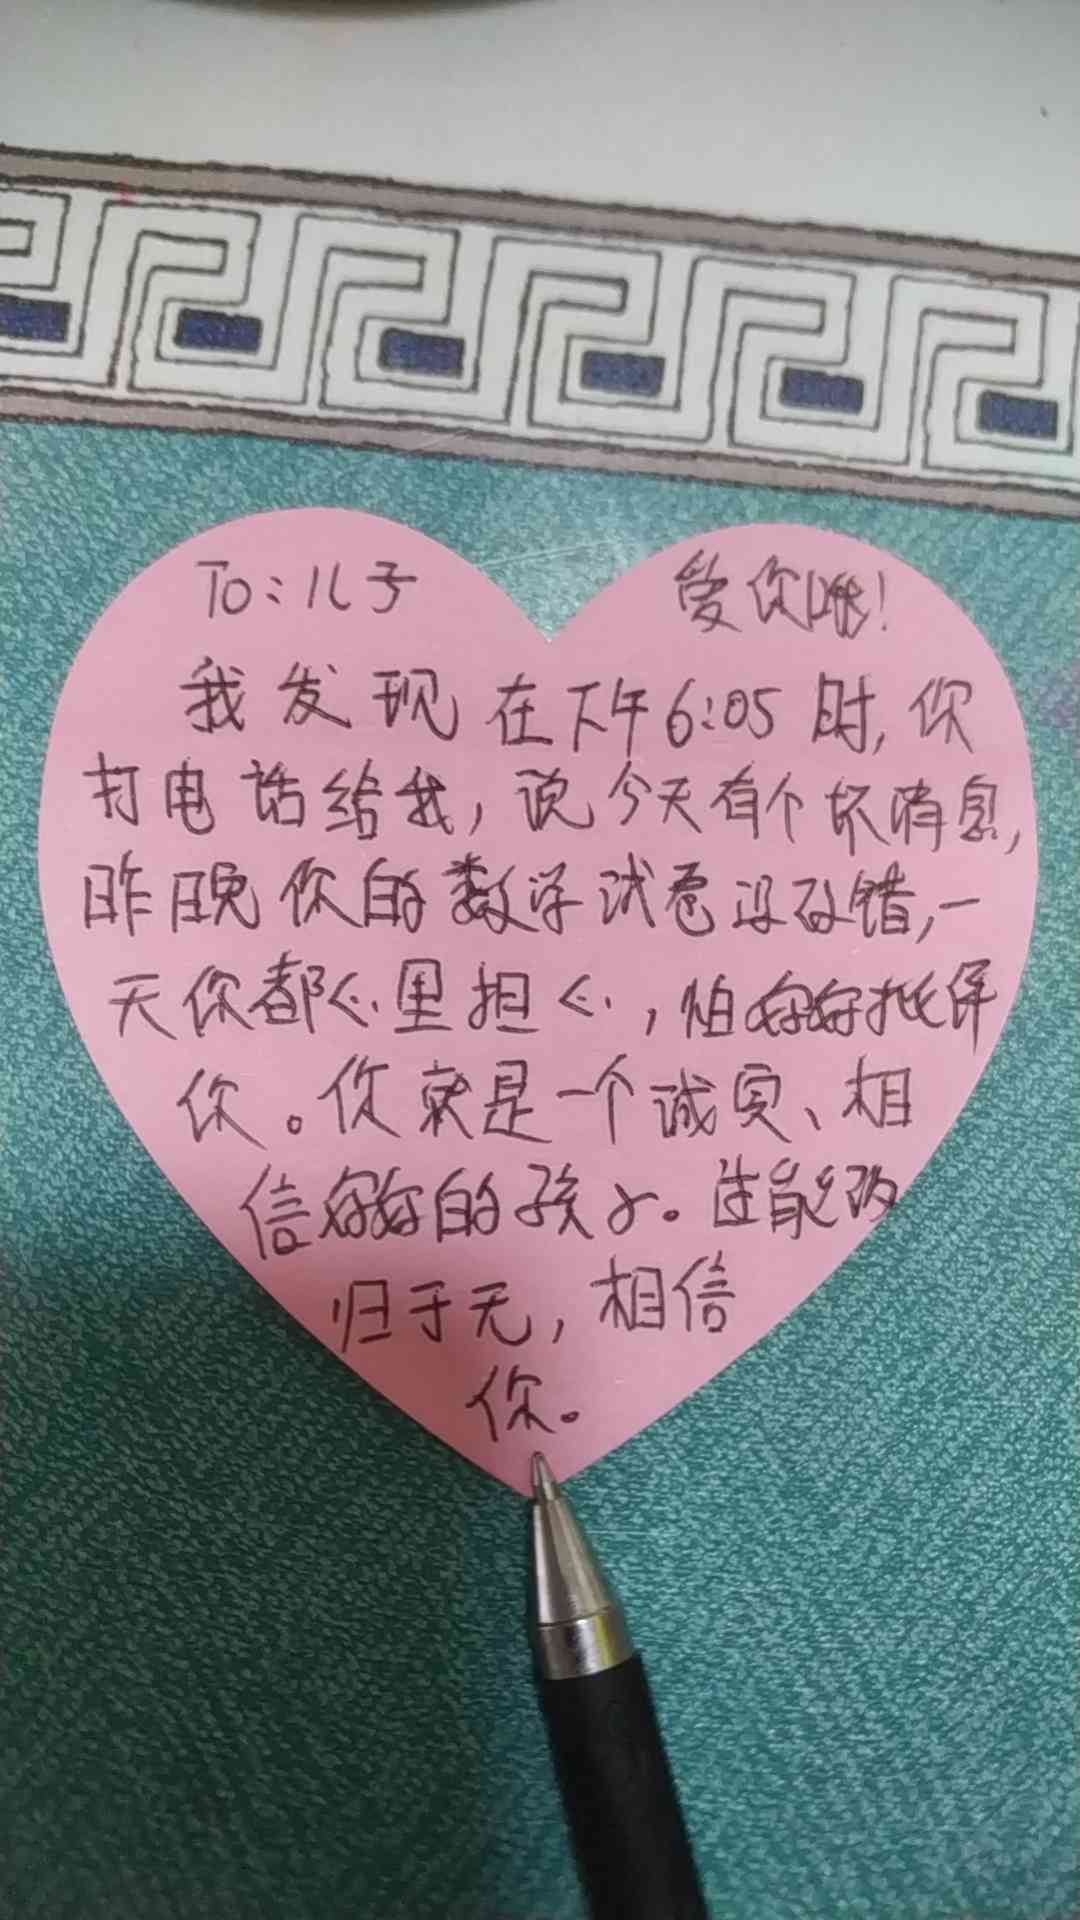 To:儿子 爱你哦!
我发现在下午6:05时,你
打电话给我,说今天有个坏消息,
昨晚你的数学试卷没改错,一
天你都心里担心,怕妈妈批评
你。你就是一个诚实、相
信妈妈的孩子。过能改
归于无,相信
你。